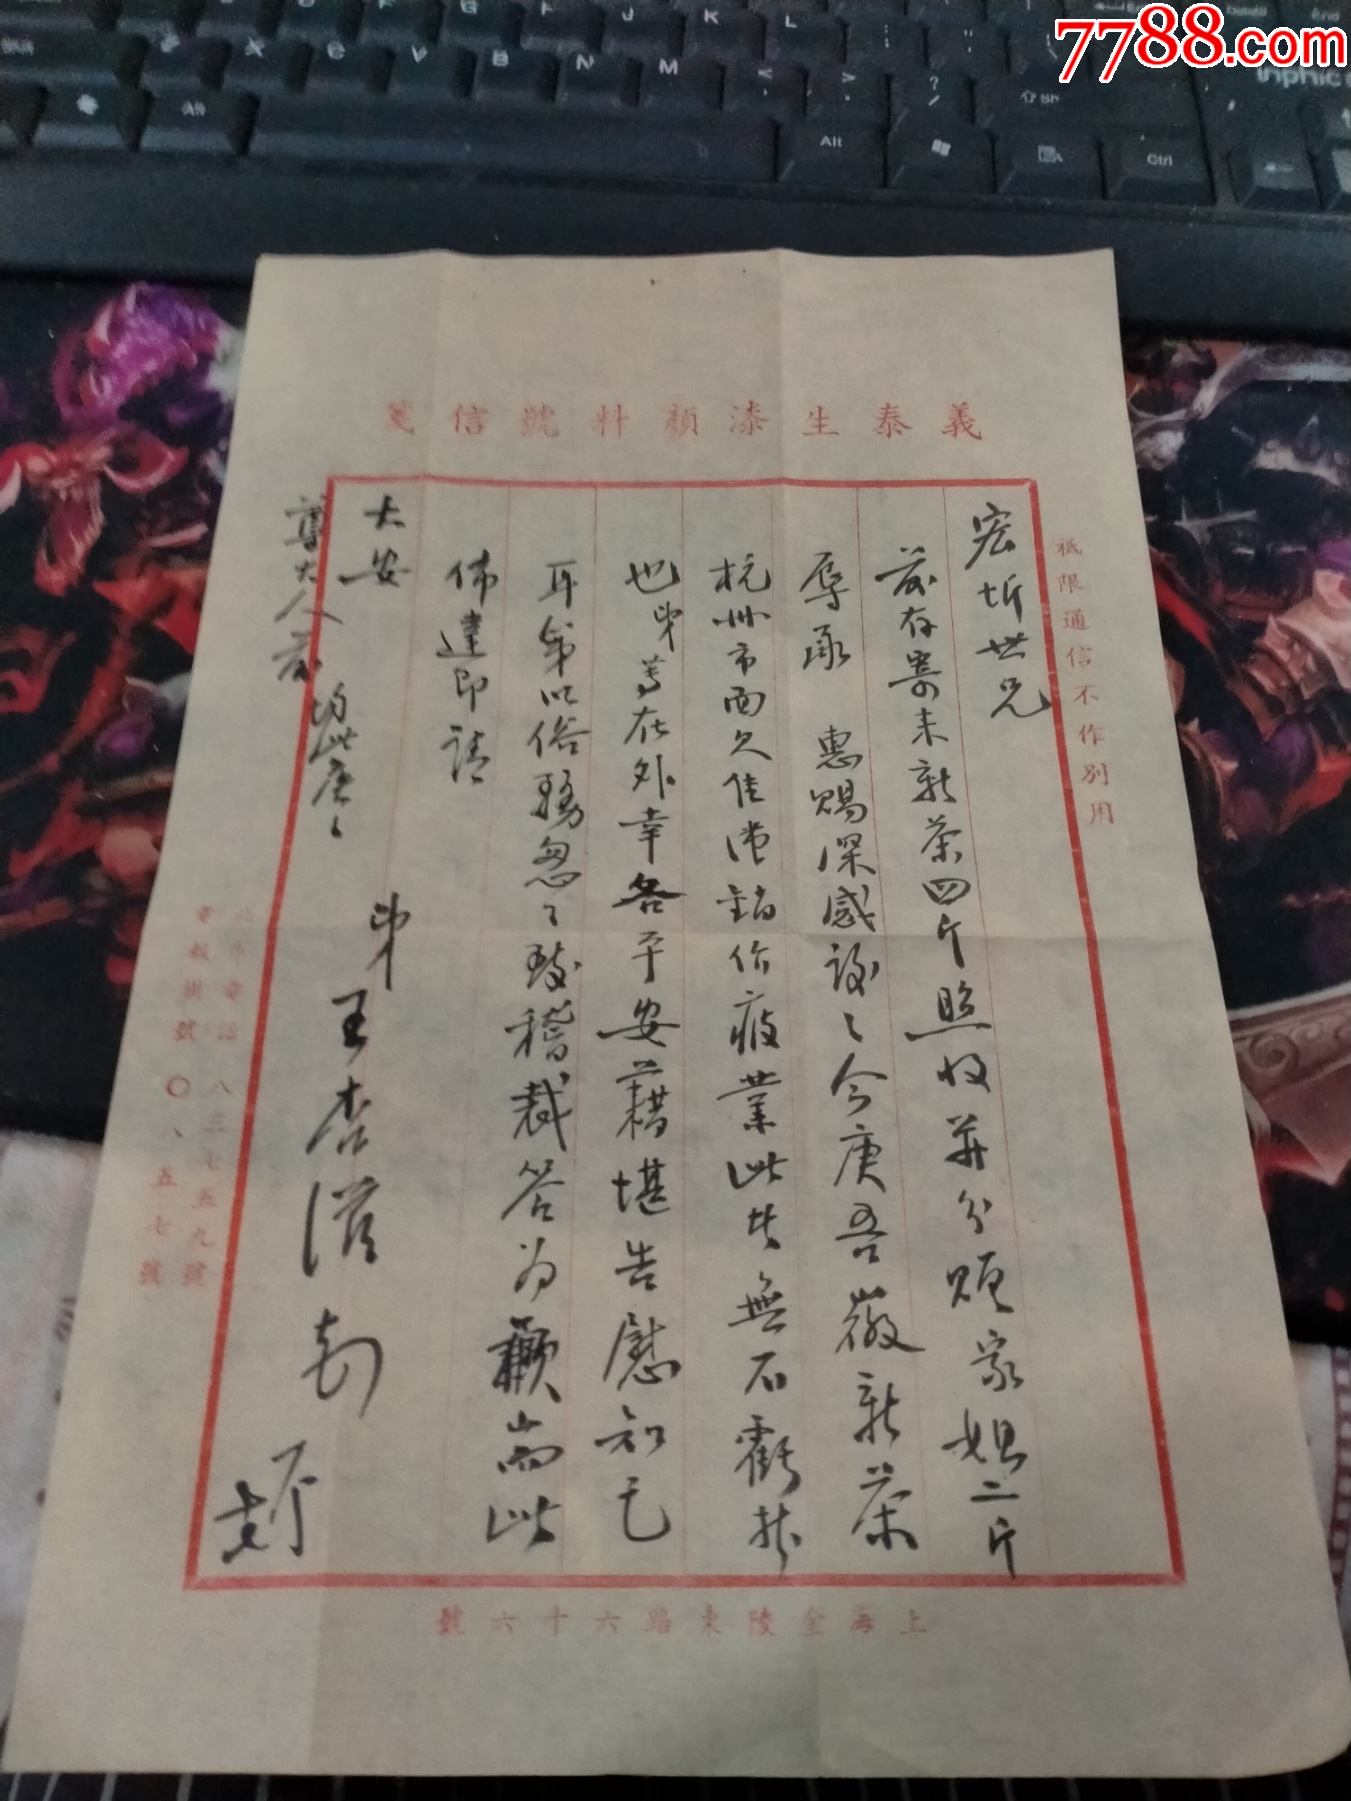 7788.com
義泰生漆顏料號信箋
祇限通信不作別用
宏圻世兄
前存寄來新茶四斤照收并分贈家姐二斤
辱承 惠賜深感謝々今庚吾徽新茶
杭州市面欠佳滬銷價疲業此者無不虧
也弟等在外幸各平安藉堪告慰知己
耳弟以俗務匆々致稽裁答為歉耑此
佈達即請
大安
尊大人前 均此
弟王杏滋
上海金陵東路六十六號
電話 八三七五九號
電報掛號 〇八五七號
Alt
Alt
Ctrl
End
Z
X
C
V
B
N
M